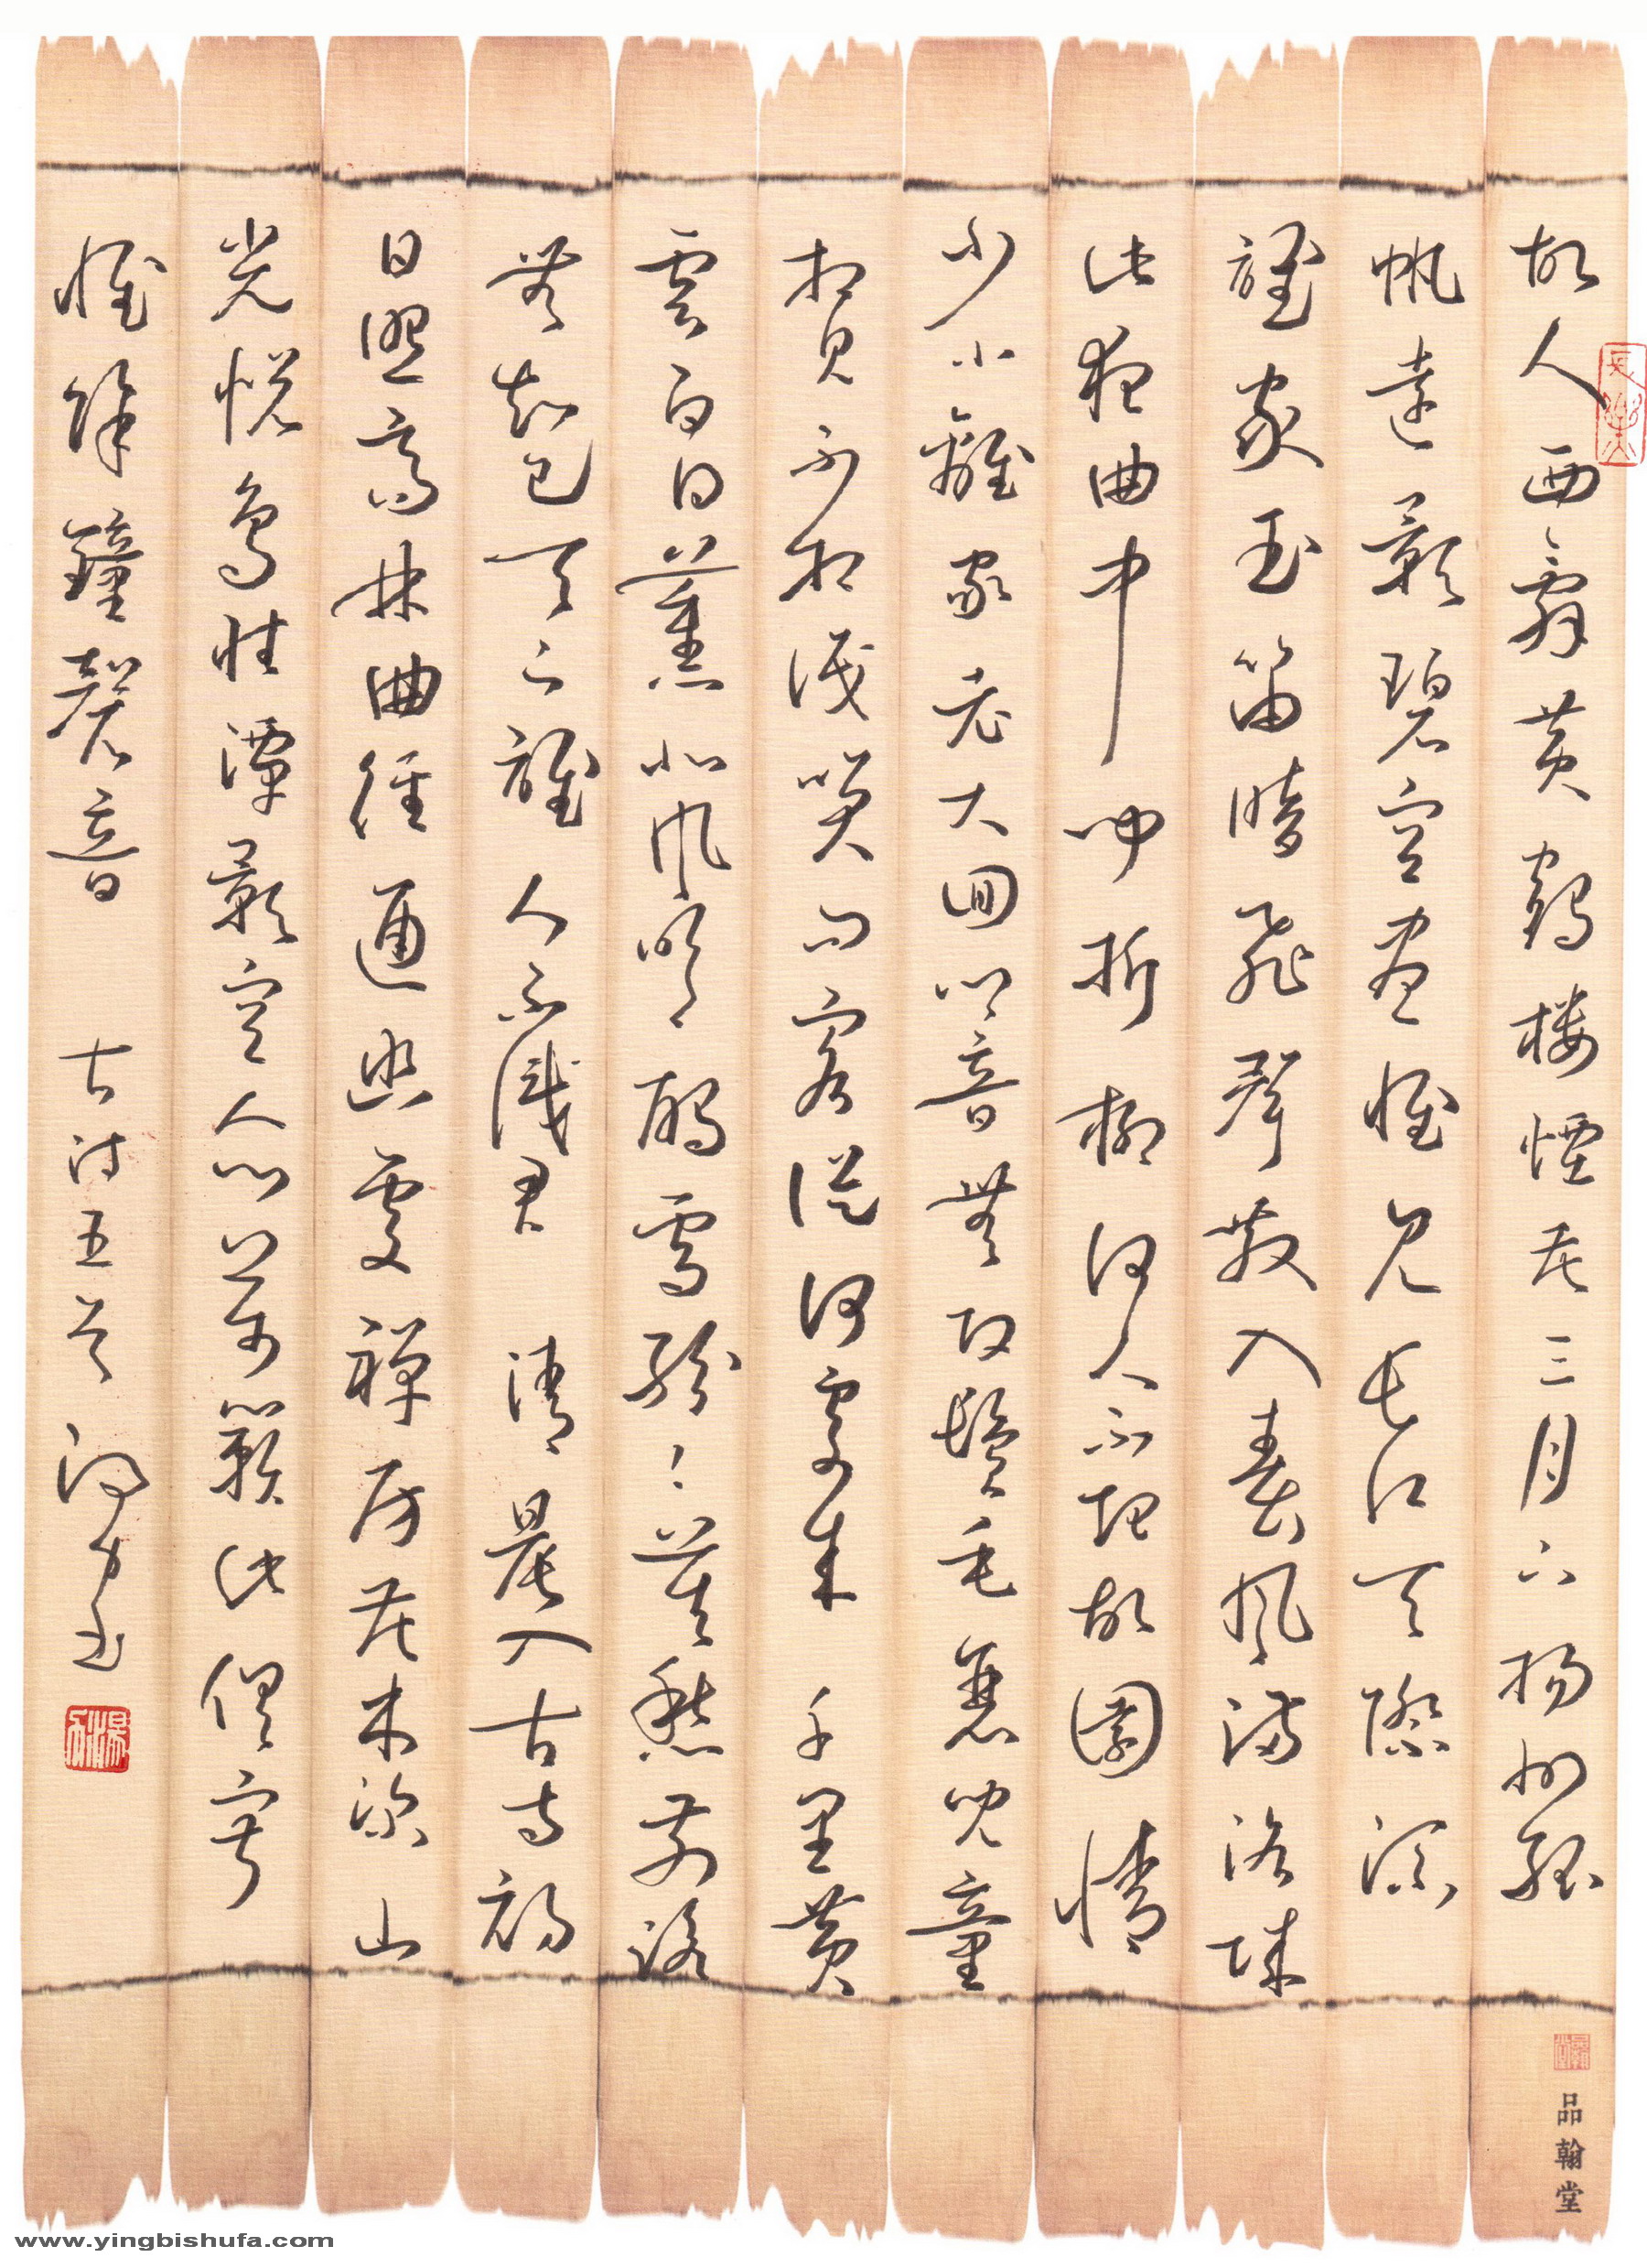 故人西辭黃鶴樓煙花三月下揚州孤
帆遠影碧空盡惟見長江天際流
誰家玉笛暗飛聲散入春風滿洛城
此夜曲中聞折柳何人不起故園情
少小離家老大回鄉音無改鬢毛衰兒童
相見不相識笑問客從何處來 千里黃
雲白日薰北風吹雁雪紛紛莫愁前路
無知己天下誰人不識君 清晨入古寺初
日照高林曲徑通幽處禪房花木深山
光悅鳥性潭影空人心萬籟此俱寂
惟餘鐘磬音 古詩五首 書
品翰堂
www.yingbishufa.com